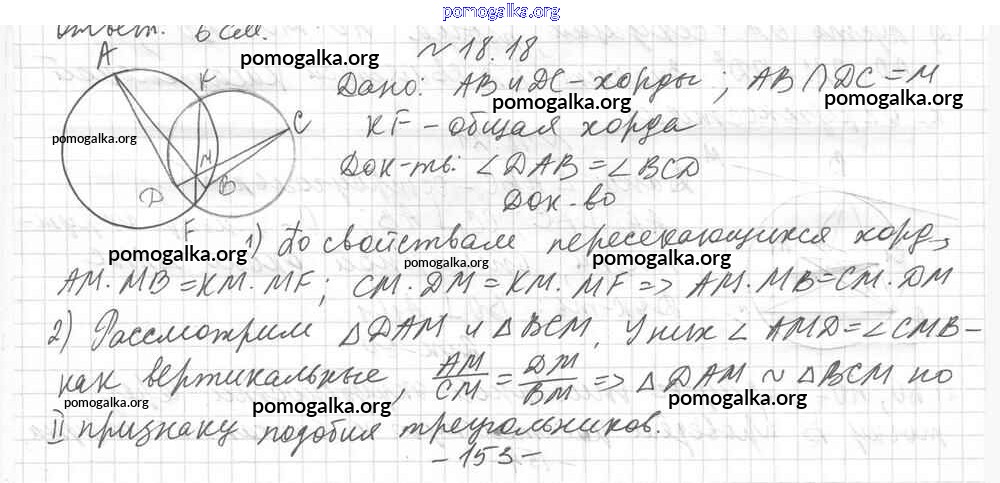 pomogalka.org
Ответ: 6 см.
N 18.18
A K C M D B F
Дано: AB и DC - хорды; AB ∩ DC = M
KF - общая хорда
Док-ть: ∠DAB = ∠BCD
Док-во
1) По свойствам пересекающихся хорд,
AM · MB = KM · MF; CM · DM = KM · MF => AM · MB = CM · DM
2) Рассмотрим △DAM и △BCM, У них ∠AMD = ∠CMB -
как вертикальные, AM/CM = DM/BM => △DAM ~ △BCM по
II признаку подобия треугольников.
- 153 -
pomogalka.org
pomogalka.org
pomogalka.org
pomogalka.org
pomogalka.org
pomogalka.org
pomogalka.org
pomogalka.org
pomogalka.org
pomogalka.org
pomogalka.org